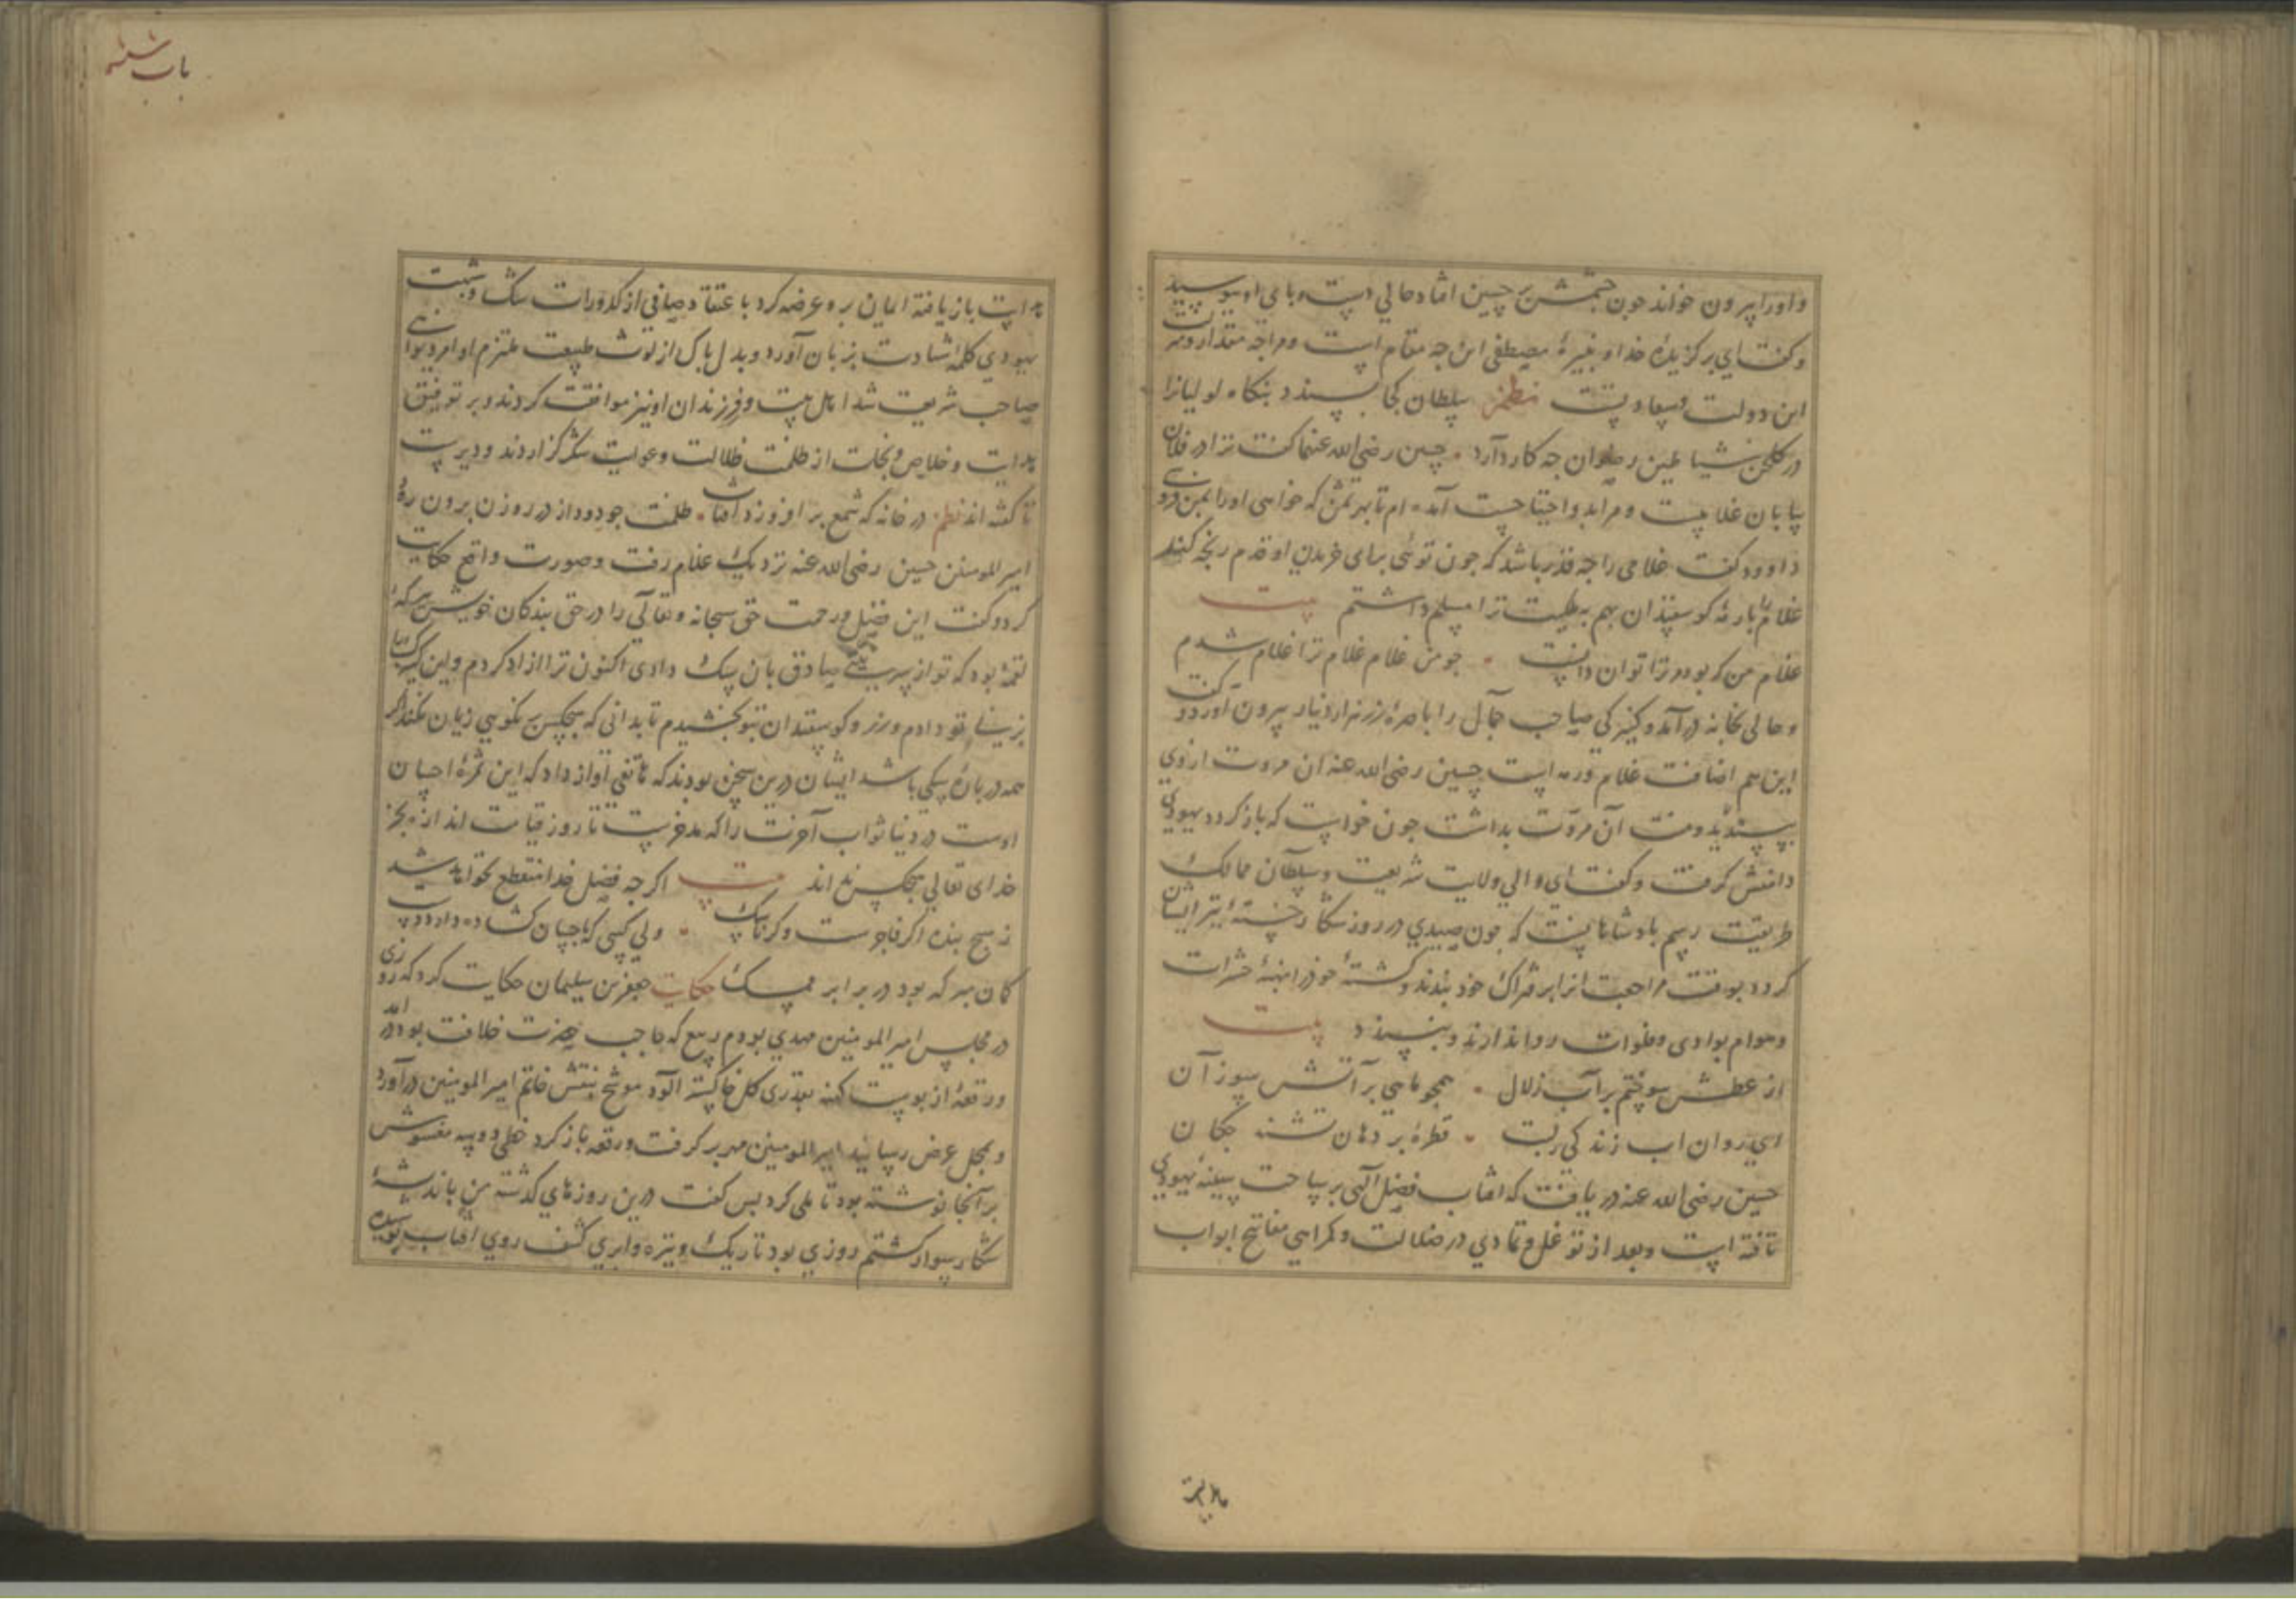 و او را بیرون خواند چون چشمش بر حسین افتاد حالی دست و پای او ببوسید
و کفت ای برکزیدۀ خدا و نبیرۀ مصطفی این چه مقام است و مرا چه مقدار و مرتبت
این دولت و سعادتست نظم سلطان کجا پسندد بنکاه لولیانرا
در کلخن شیاطین رضوان چه کار دارد حسین رضی الله عنهما کفت ترا در فلان
بیابان غلامیست و مرا بدو احتیاجست آمده‌ام تا بهر ثمن که خواهی او را بمن فروشی
داوود کفت غلامی را چه قدر باشد که چون توئی برای خریدن او قدم رنجه کند
غلام را با رمۀ کوسفندان بهم بطیبت ترا مسلم داشتم بیت
غلام من که بود مر ترا توان دانست چو من غلام غلام ترا غلام شدم
و حالی بخانه درآمد و کنیزکی صاحب جمال را با صرۀ زر هزار دینار بیرون آورد و کفت
این هم اضافت غلام و رمه است حسین رضی الله عنه آن مروت از وی
بپسندید و منت آن مروت بداشت چون خواست که باز کردد یهودی
دامنش کرفت و کفت ای والی ولایت شریعت و سلطان ممالک
طریقت رسم پادشاهانست که چون صیدی در روز شکار خستۀ تیر ایشان
کردد بوقت مراجعت انرا بر فتراک خود بندند و کشتۀ خود را نهبۀ حشرات
و هوام بوادی و فلوات روا ندارند و نپسندند بیت
از عطش سوختم بر آب زلال همچو ماهی بر آتش سوزان
ای روان اب زندکی ربت قطرۀ بر دهان تشنه چکان
حسین رضی الله عنه دریافت که افتاب فضل الهی بر ساحت سینۀ یهودی
تافته است و بعد از توغل و تمادی در ضلالت و کمراهی مفاتیح ابواب
هدایت
باب ششم
هدایت باز یافته ایمان برو عرضه کرد با عتقاد صافی از کدورات شک و شبهت
یهودی کلمۀ شهادت بزبان آورد و بدل پاک از لوث طبیعت ملتزم اوامر و نواهی
صاحب شریعت شد اهل بیت و فرزندان او نیز موافقت کردند و بر توفیق
هدایت و خلاص و نجات از ظلمت ظلالت و غوایت شکر کزاردند و دیرست
تا کفته‌اند نظم در خانه که شمع برافروزد افتاب ظلمت چو دود از در روزن برون رود
امیر المومنین حسین رضی الله عنه نزدیک غلام رفت و صورت واقع حکایت
کرد و کفت این فضل و رحمت حق سبحانه و تعالی را در حق بندکان خویش برکۀ
لقمۀ بود که تو از سر نیت صادق بان سک دادی اکنون ترا ازاد کردم و این کنیزک را
بزنی بتو دادم و زر و کوسفندان بتو بخشیدم تا بدانی که هیچکس بر نکویی زیان نکند اکر
همه در بارۀ سکی باشد ایشان درین سخن بودند که هاتفی آواز داد که این ثمرۀ احسان
اوست در دنیا ثواب آخرت را که مدخرست تا روز قیامت اندازه بجز
خدای تعالی هیچکس نداند بیت اکر چه فضل خدا منقطع نخواهد شد
ز هیچ بنده اکر فاجرست و کر ناسک ولی کسی که باحسان کشاده دارد دست
کمان مبر که بود در برابر ممسک حکایت جعفر بن سلیمان حکایت کرد که روزی
در مجلس امیر المومنین مهدی بودم ربیع که حاجب حضرت خلافت بود درآمد
و رقعۀ از پوست کهنه بقدری کل خاکستر الود موشح بنقش خاتم امیر المومنین درآورد
و بمحل عرض رسانید امیر المومنین مهر بر کرفت و رقعه باز کرد خطی دو سه مغشوش
بر آنجا نوشته بود تاملی کرد پس کفت درین روزهای کذشته من باندیشۀ
شکار سوار کشتم روزی بود تاریک و تیره و ابری کثف روی افتاب پوشیده